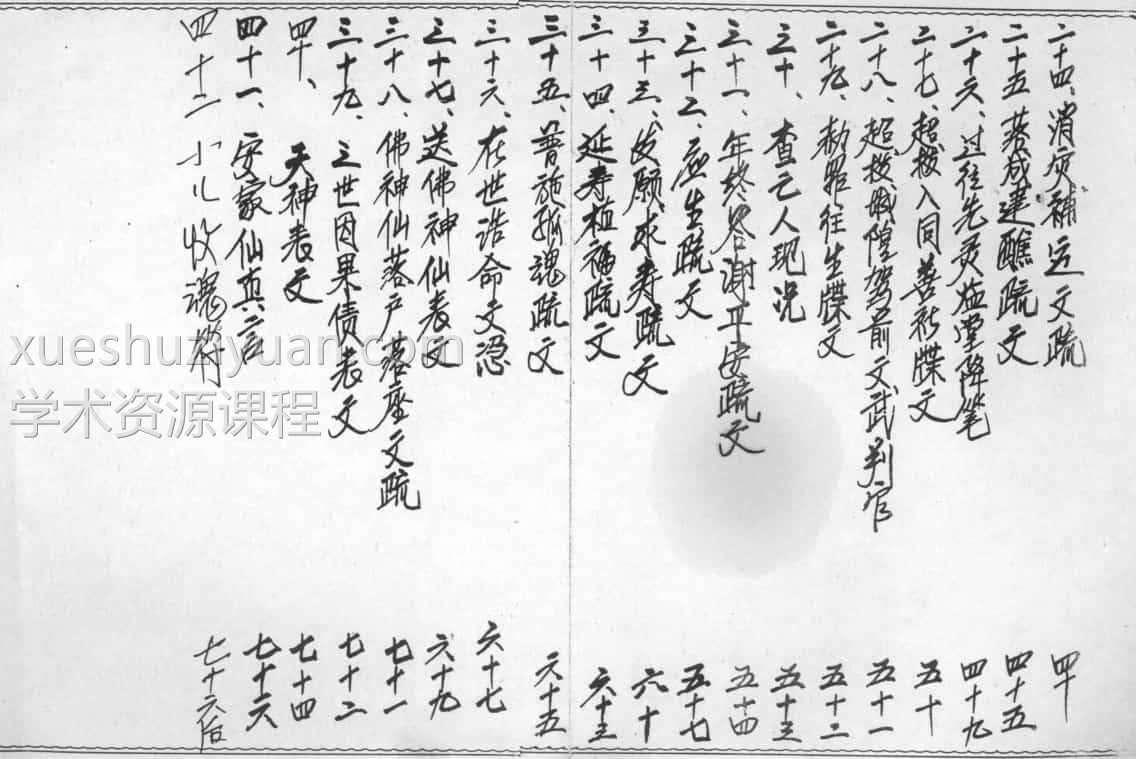 二十四、消灾補运文疏 四十
二十五落成建醮文疏 四十五
二十六、过往先灵临堂降笔 四十九
二十七、超拔入同善社牒文 五十
二十八、超拔城隍驾前文武判官 五十一
二十九、勅照往生牒文 五十二
三十、查亡人现况 五十三
三十一、年终答谢平安疏文 五十四
三十二、应生疏文 五十七
三十三、发愿求寿疏文 六十
三十四、延寿植福疏文 六十三
三十五、普施孤魂疏文 六十五
三十六、在世诰命文 六十七
三十七、送佛神仙表文 六十九
三十八、佛神仙落户落座文疏 七十一
三十九、三世因果债表文 七十二
四十、天神表文 七十四
四十一、安家仙真言 七十六
四十二小儿收魂符 七十六后
xueshuziyuan.com
学术资源课程